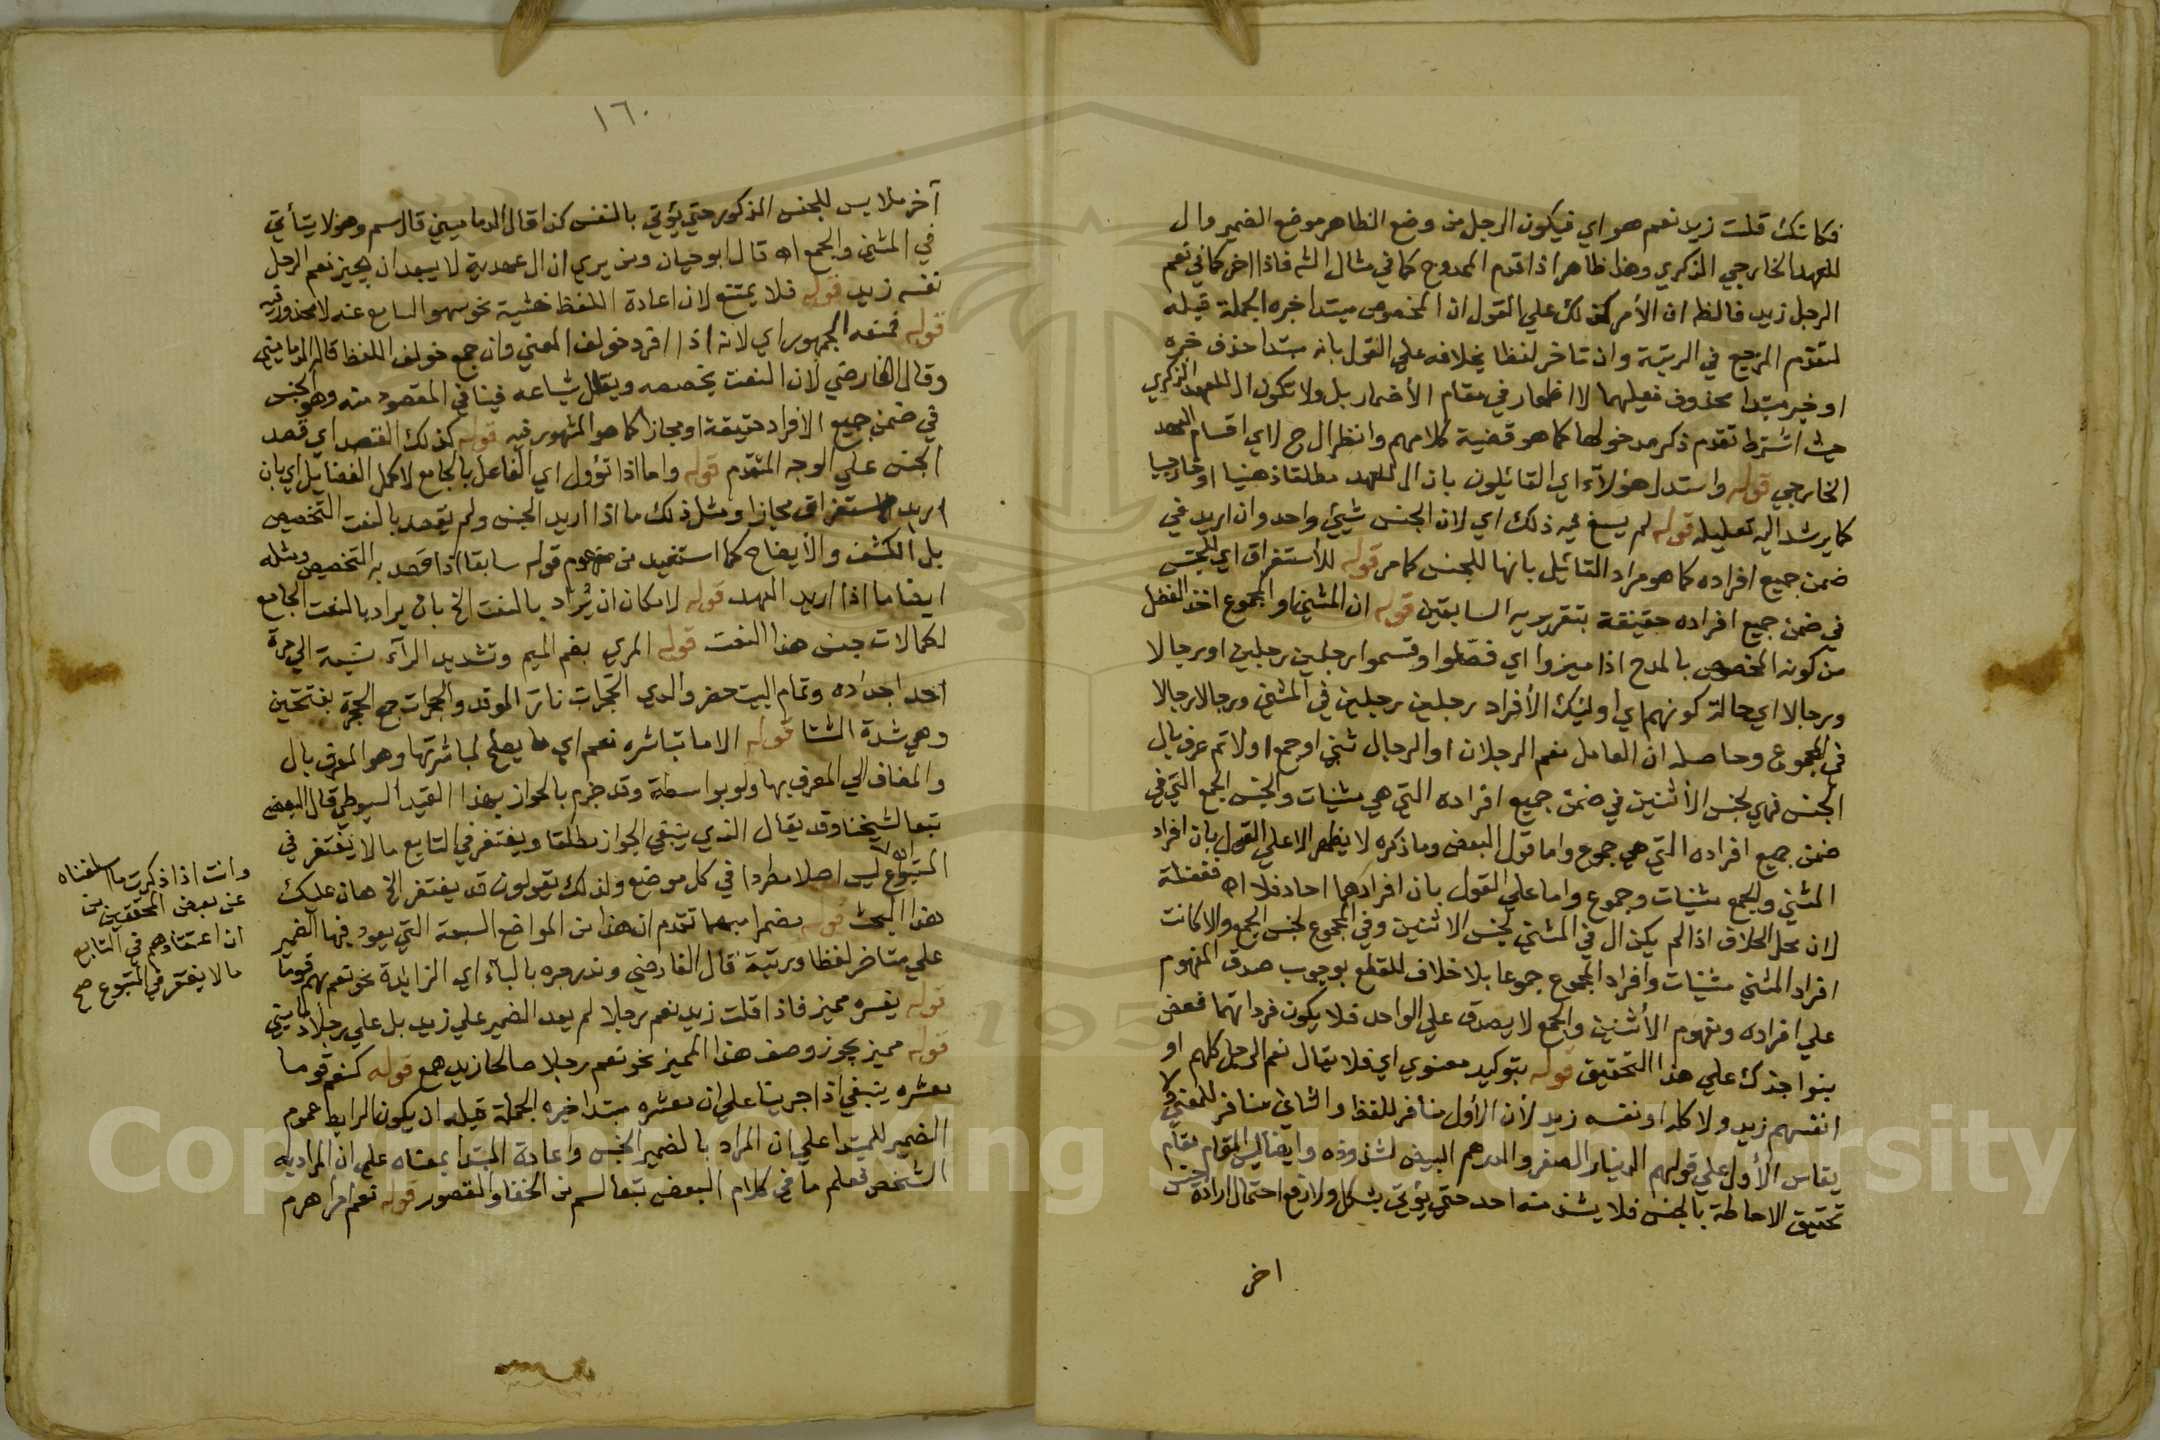 فكانك قلت زيد نعم هو اي فيكون الرجل من وضع الظاهر موضع الضمير وال
للعهد الخارجي الذكري وهذا ظاهر اذا تقدم الممدوح كما في مثال الش فاذا اخر كما في نعم
الرجل زيد فالظ ان الأمر كذلك علي القول ان المخصوص مبتدا خبره الجملة قبله
لتقدم المرجع في الرتبة وان تاخر لفظا بخلافه علي القول بانه مبتدا حذف خبره
او خبر مبتدا محذوف فعليهما لا اظهار في مقام الأضمار بل ولا تكون ال للعهد الذكري
حيث اشترط تقدم ذكر مدخولها كما هو قضية كلامهم وانظر ال ح لاي اقسام العهد
الخارجي قوله واستدل هؤلآء اي القائلون بان ال للعهد مطلقا ذهنيا او خارجيا
كما يرشد اليه تعليله قوله لم يسغ فيه ذلك اي لان الجنس شيئ واحد وان اريد في
ضمن جميع افراده كما هو مراد القائل بانها للجنس كما مر قوله للأستغراق اي للجنس
في ضمن جميع افراده حقيقة بتقريريه السابقين قوله ان المثني والمجموع اخذ الفضل
من كونه المخصوص بالمدح اذا ميزوا اي فصلوا وقسموا رجلين رجلين او رجالا
ورجالا اي حالة كونهم اي اوليئك الأفراد رجلين رجلين في المثني ورجالا رجالا
في المجموع وحاصله ان العامل نعم الرجلان او الرجال ثني او جمع اولا ثم عرف بال
الجنس فهي لجنس الأثنين في ضمن جميع افراده التي هي مثنيات ولجنس الجمع التي في
ضمن جميع افراده التي هي جموع واما قول البعض وما ذكره لا يظهر الا علي القول بان افراد
المثني والجمع مثنيات وجموع واما علي القول بان افرادهما احاد فلا اه فغفلة
لان محل الخلاف اذا لم يكن ال في المثني لجنس الاثنين وفي المجموع لجنس الجمع والا كانت
افراد المثني مثنيات وافراد المجموع جموعا بلا خلاف للقطع بوجوب صدق المفهوم
علي افراده ومفهوم الأثنين والجمع لا يصدق علي الواحد فلا يكون فردا تهما فعض
بنواجذك علي هذا التحقيق قوله بتوكيد معنوي اي فلا يقال نعم الرجل كلهم او
انفسهم زيد ولا كله او نفسه زيد لأن الأول منافر للفظ والثاني منافر للمعني ولا
يقاس الأول علي قولهم الدينار الصفر والدرهم البيض لشذوذه وايضا ليس المقام مقام
تحقيق الاحاطة بالجنس فلا يشذ منه احد حتي يؤتي بكل ولا رفع احتمال ارادة جنس
اخر
١٦٠
آخر ملابس للجنس المذكور حتي يؤتي بالنفس كذا قال الدماميني قال سم وهو لا يتأتي
في المثني والجمع اه قال ابو حيان ومن يري ان ال عهدية لا يبعد ان يجيز نعم الرجل
نفسه زيد قوله فلا يمتنع لان اعادة اللفظ خشية نحو سهو السامع عنه لا محذور فيه
قوله فمنعه الجمهور اي لانه اذا افرد خولف المعني وان جمع خولف اللفظ قاله الدماميني
وقال الفارضي لان النعت يخصصه ويقلل شياعه فينافي المقصود منه وهو الجنس
في ضمن جميع الافراد حقيقة او مجازا كما هو المشهور فيه قوله كذلك القصد اي قصد
الجنس علي الوجه المتقدم قوله واما اذا تؤول اي الفاعل بالجامع لاكمل الفضايل اي بان
اريد الاستغراق مجازا ومثل ذلك ما اذا اريد الجنس ولم يقصد بالنعت التخصيص
بل الكشف والأيضاح كما استفيد من مفهوم قوله سابقا اذا قصد به التخصيص ومثله
ايضا ما اذا اريد العهد قوله لامكان ان يُراد بالنعت الخ بان يراد بالنعت الجامع
لكمالات جنس هذا النعت قوله المري بضم الميم وتشديد الرآء نسبة الي مرة
احد اجداده وتمام البيت حضر والدي الحجرات نار الموقد والحجرات جمع الحجرة بفتحتين
وهي شدة الشتا قوله الا ما تباشره نعم اي ما يصلح لمباشرتها وهو المعرف بال
والمضاف الي المعرف بها ولو بواسطة وقد جزم بالجواز بهذا القيد السيوطي قال البعض
تبعا لشيخنا وقد يقال الذي ينبغي الجواز مطلقا ويغتفر في التابع ما لا يغتفر في
المتبوع ليس اصلا مطردا في كل موضع ولذلك يقولون قد يغتفر الخ هان عليك
هذا البحث قوله مضمرا مبهما تقدم ان هذا من المواضع السبعة التي يعود فيها الضمير
علي متاخر لفظا ورتبة قال الفارضي وندر جره بالبآء اي الزايدة نحو نعم بهم قوما
قوله يفسره مميز فاذا قلت زيد نعم رجلا لم يعد الضمير علي زيد بل علي رجلا دماميني
قوله مميز يجوز وصف هذا المميز نحو نعم رجلا صالحا زيد همع قوله كنعم قوما
معشره ينبغي اذا جرينا علي ان معشره مبتدا خبره الجملة قبله ان يكون الرابط عموم
الضمير للمبتدا علي ان المراد بالضمير الجنس واعادة المبتدا بمعناه علي ان المراد به
الشخص فعلم ما في كلام البعض تبعا لسم من الخفا والقصور قوله نعم امرا هرم
وانت اذا ذكرت ما اسلفناه
عن بعض المحققين من
ان اعتقادهم في التابع
ما لا يغتفر في المتبوع صح
Copyright © King Saud University
195